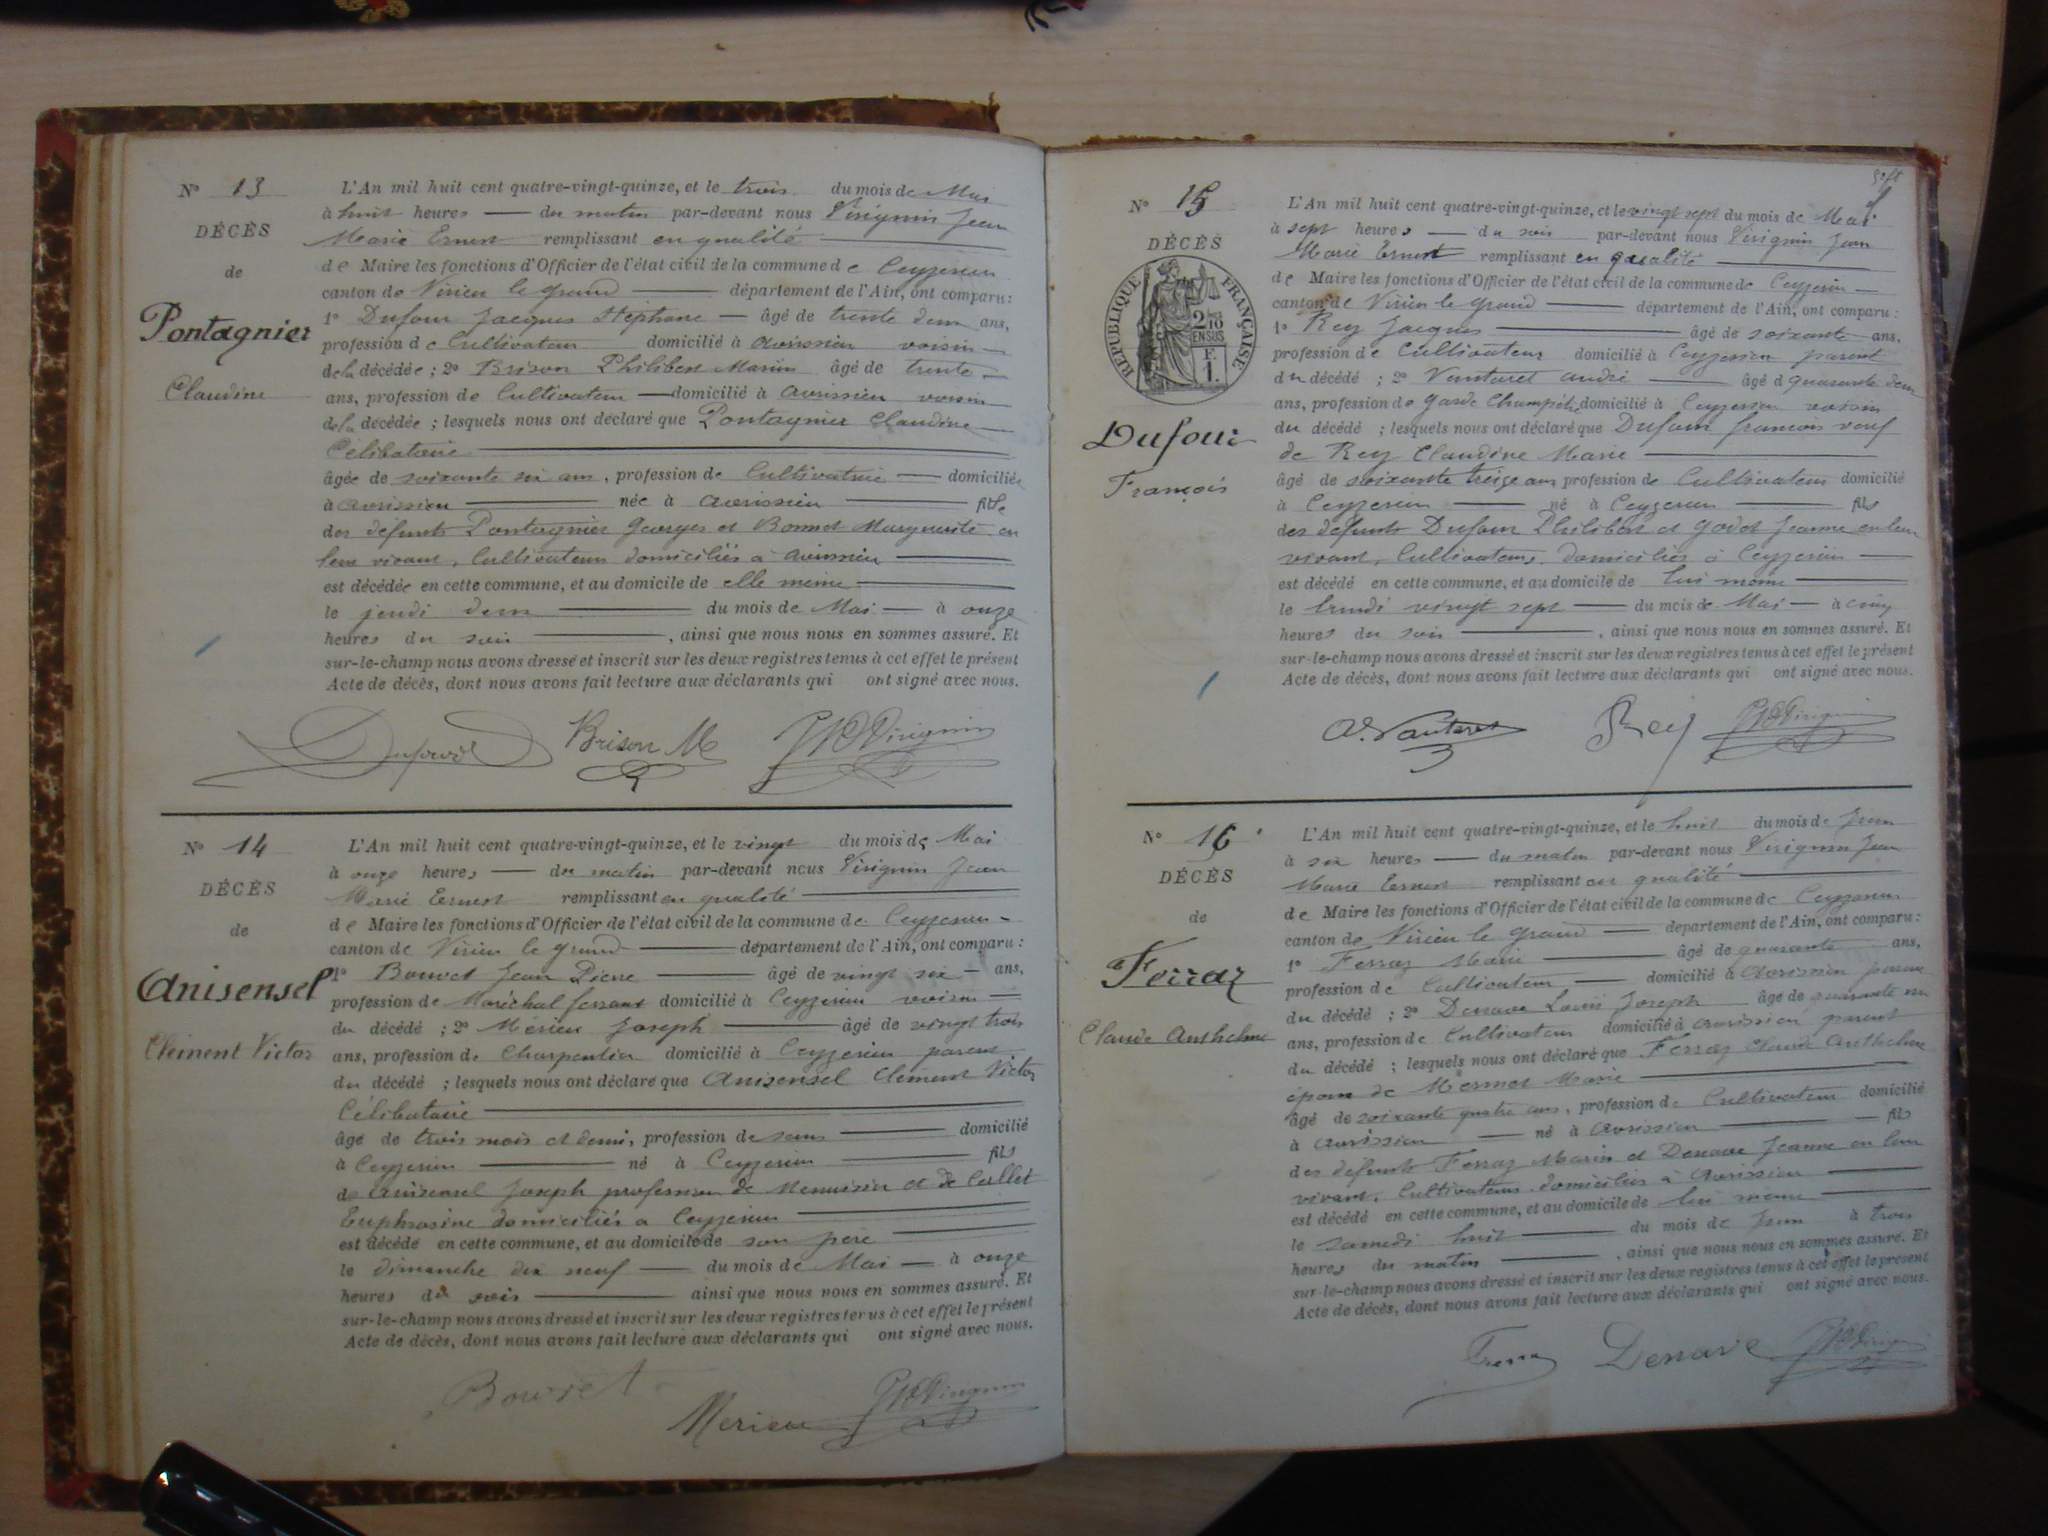 N° 13
DÉCÈS
de
Pontagnier
Claudine
L'An mil huit cent quatre-vingt-quinze, et le trois du mois de Mai
à huit heures — du matin par-devant nous Virignin Jean
Marie Ernest remplissant en qualité
de Maire les fonctions d'Officier de l'état civil de la commune de Ceyzerieu
canton de Virieu le grand — département de l'Ain, ont comparu :
1° Dufour Jacques Stéphane — âgé de trente deux ans,
profession de Cultivateur domicilié à Avrissieu voisin
de la décédée ; 2° Brison Philibert Marin âgé de trente
ans, profession de Cultivateur — domicilié à Avrissieu voisin
de la décédée ; lesquels nous ont déclaré que Pontagnier Claudine
Célibataire
âgée de soixante six ans, profession de Cultivatrice — domiciliée
à Avrissieu — née à Avrissieu — fille
des défunts Pontagnier Georges et Bonnet Marguerite en
leur vivant, Cultivateurs domiciliés à Avrissieu
est décédée en cette commune, et au domicile de elle même
le jeudi deux — du mois de Mai — à onze
heures du soir — , ainsi que nous nous en sommes assuré. Et
sur-le-champ nous avons dressé et inscrit sur les deux registres tenus à cet effet le présent
Acte de décès, dont nous avons fait lecture aux déclarants qui ont signé avec nous.
Dufour Brison M Virignin
N° 14
DÉCÈS
de
Anisensel
Clément Victor
L'An mil huit cent quatre-vingt-quinze, et le vingt du mois de Mai
à onze heures — du matin par-devant nous Virignin Jean
Marie Ernest remplissant en qualité
de Maire les fonctions d'Officier de l'état civil de la commune de Ceyzerieu
canton de Virieu le grand — département de l'Ain, ont comparu :
1° Bouvet Jean Pierre — âgé de vingt six — ans,
profession de Maréchal ferrant domicilié à Ceyzerieu voisin
du décédé ; 2° Mérieu Joseph — âgé de vingt trois
ans, profession de Charpentier domicilié à Ceyzerieu parent
du décédé ; lesquels nous ont déclaré que Anisensel Clément Victor
Célibataire
âgé de trois mois et demi, profession de sans — domicilié
à Ceyzerieu — né à Ceyzerieu — fils
de Anisensel Joseph profession de Menuisier et de Cullet
Euphrosine domiciliés à Ceyzerieu
est décédé en cette commune, et au domicile de son père
le dimanche dix neuf — du mois de Mai — à onze
heures du soir — ainsi que nous nous en sommes assuré. Et
sur-le-champ nous avons dressé et inscrit sur les deux registres tenus à cet effet le présent
Acte de décès, dont nous avons fait lecture aux déclarants qui ont signé avec nous.
Bouvet
Merieu Virignin
N° 15
DÉCÈS
RÉPUBLIQUE FRANÇAISE
2/10 EN SUS
F.
1.
Dufour
François
L'An mil huit cent quatre-vingt-quinze, et le vingt sept du mois de Mai
à sept heures — du soir par-devant nous Virignin Jean
Marie Ernest remplissant en qualité
de Maire les fonctions d'Officier de l'état civil de la commune de Ceyzerieu
canton de Virieu le grand — département de l'Ain, ont comparu :
1° Rey Jacques — âgé de soixante ans,
profession de Cultivateur domicilié à Ceyzerieu parent
du décédé ; 2° Vautaret André — âgé de quarante deux
ans, profession de garde Champêtre domicilié à Ceyzerieu voisin
du décédé ; lesquels nous ont déclaré que Dufour François veuf
de Rey Claudine Marie
âgé de soixante treize ans profession de Cultivateur domicilié
à Ceyzerieu — né à Ceyzerieu — fils
des défunts Dufour Philibert et Godet Jeanne en leur
vivant, Cultivateurs domiciliés à Ceyzerieu
est décédé en cette commune, et au domicile de lui même
le lundi vingt sept — du mois de Mai — à cinq
heures du soir — , ainsi que nous nous en sommes assuré. Et
sur-le-champ nous avons dressé et inscrit sur les deux registres tenus à cet effet le présent
Acte de décès, dont nous avons fait lecture aux déclarants qui ont signé avec nous.
A. Vautaret Rey Virignin
N° 16
DÉCÈS
de
Ferraz
Claude Anthelme
L'An mil huit cent quatre-vingt-quinze, et le huit du mois de Juin
à six heures — du matin par-devant nous Virignin Jean
Marie Ernest remplissant en qualité
de Maire les fonctions d'Officier de l'état civil de la commune de Ceyzerieu
canton de Virieu le grand — département de l'Ain, ont comparu :
1° Ferraz Marie — âgé de quarante ans,
profession de Cultivateur — domicilié à Avrissieu parent
du décédé ; 2° Denave Louis Joseph âgé de quarante un
ans, profession de Cultivateur domicilié à Avrissieu parent
du décédé ; lesquels nous ont déclaré que Ferraz Claude Anthelme
époux de Mermet Marie
âgé de soixante quatre ans, profession de Cultivateur domicilié
à Avrissieu — né à Avrissieu — fils
des défunts Ferraz Marin et Denave Jeanne en leur
vivant, Cultivateurs domiciliés à Avrissieu
est décédé en cette commune, et au domicile de lui même
le samedi huit — du mois de Juin à trois
heures du matin — , ainsi que nous nous en sommes assuré. Et
sur-le-champ nous avons dressé et inscrit sur les deux registres tenus à cet effet le présent
Acte de décès, dont nous avons fait lecture aux déclarants qui ont signé avec nous.
Denave Virignin